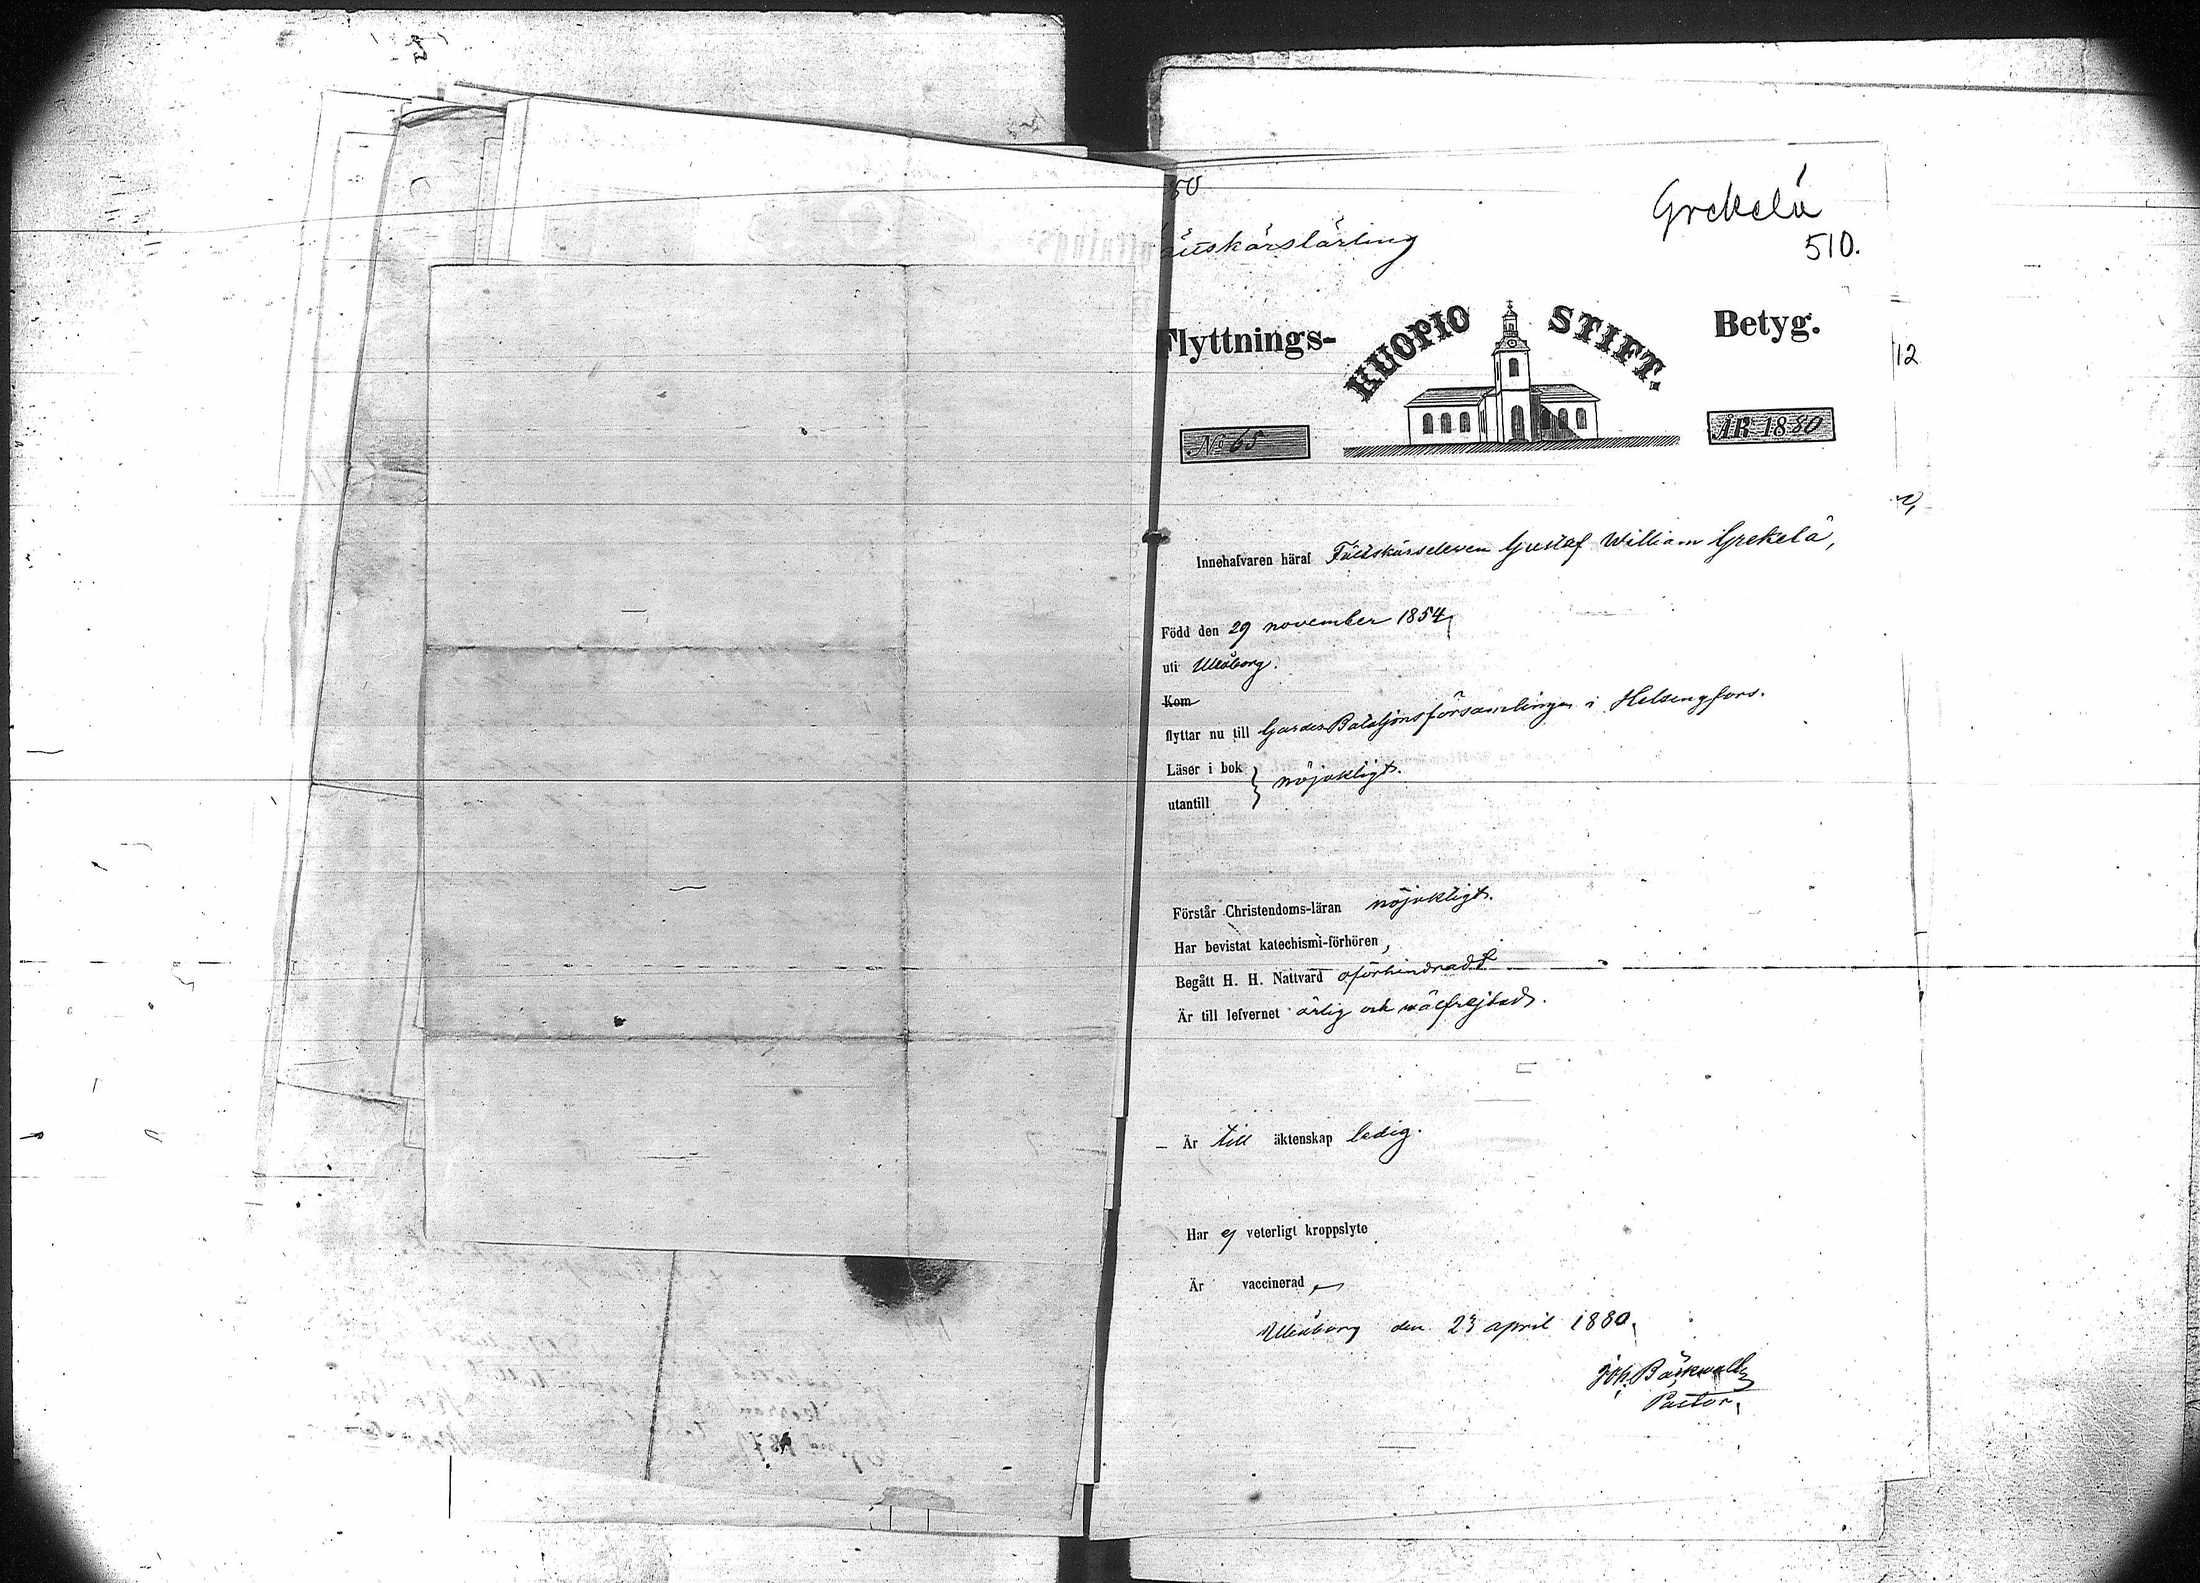 80
Grekelä
510.
ältskärslärling
Flyttnings-
KUOPIO STIFT.
Betyg.
12
№ 65
ÅR 1880
Innehafvaren häraf Fältskärseleven Gustaf William Grekelä,
Född den 29 november 1854,
uti Uleåborg.
Kom
flyttar nu till Gardes Bataljonsförsamlingen i Helsingfors.
Läser i bok } nöjaktligt.
utantill
Förstår Christendoms-läran nöjaktligt.
Har bevistat katechismi-förhören,
Begått H. H. Nattvard oförhindradt
Är till lefvernet ärlig och välfrejdad.
Är till äktenskap ledig.
Har ej veterligt kroppslyte
Är vaccinerad
Uleåborg den 23 april 1880.
Joh. Bäckwall
Pastor.